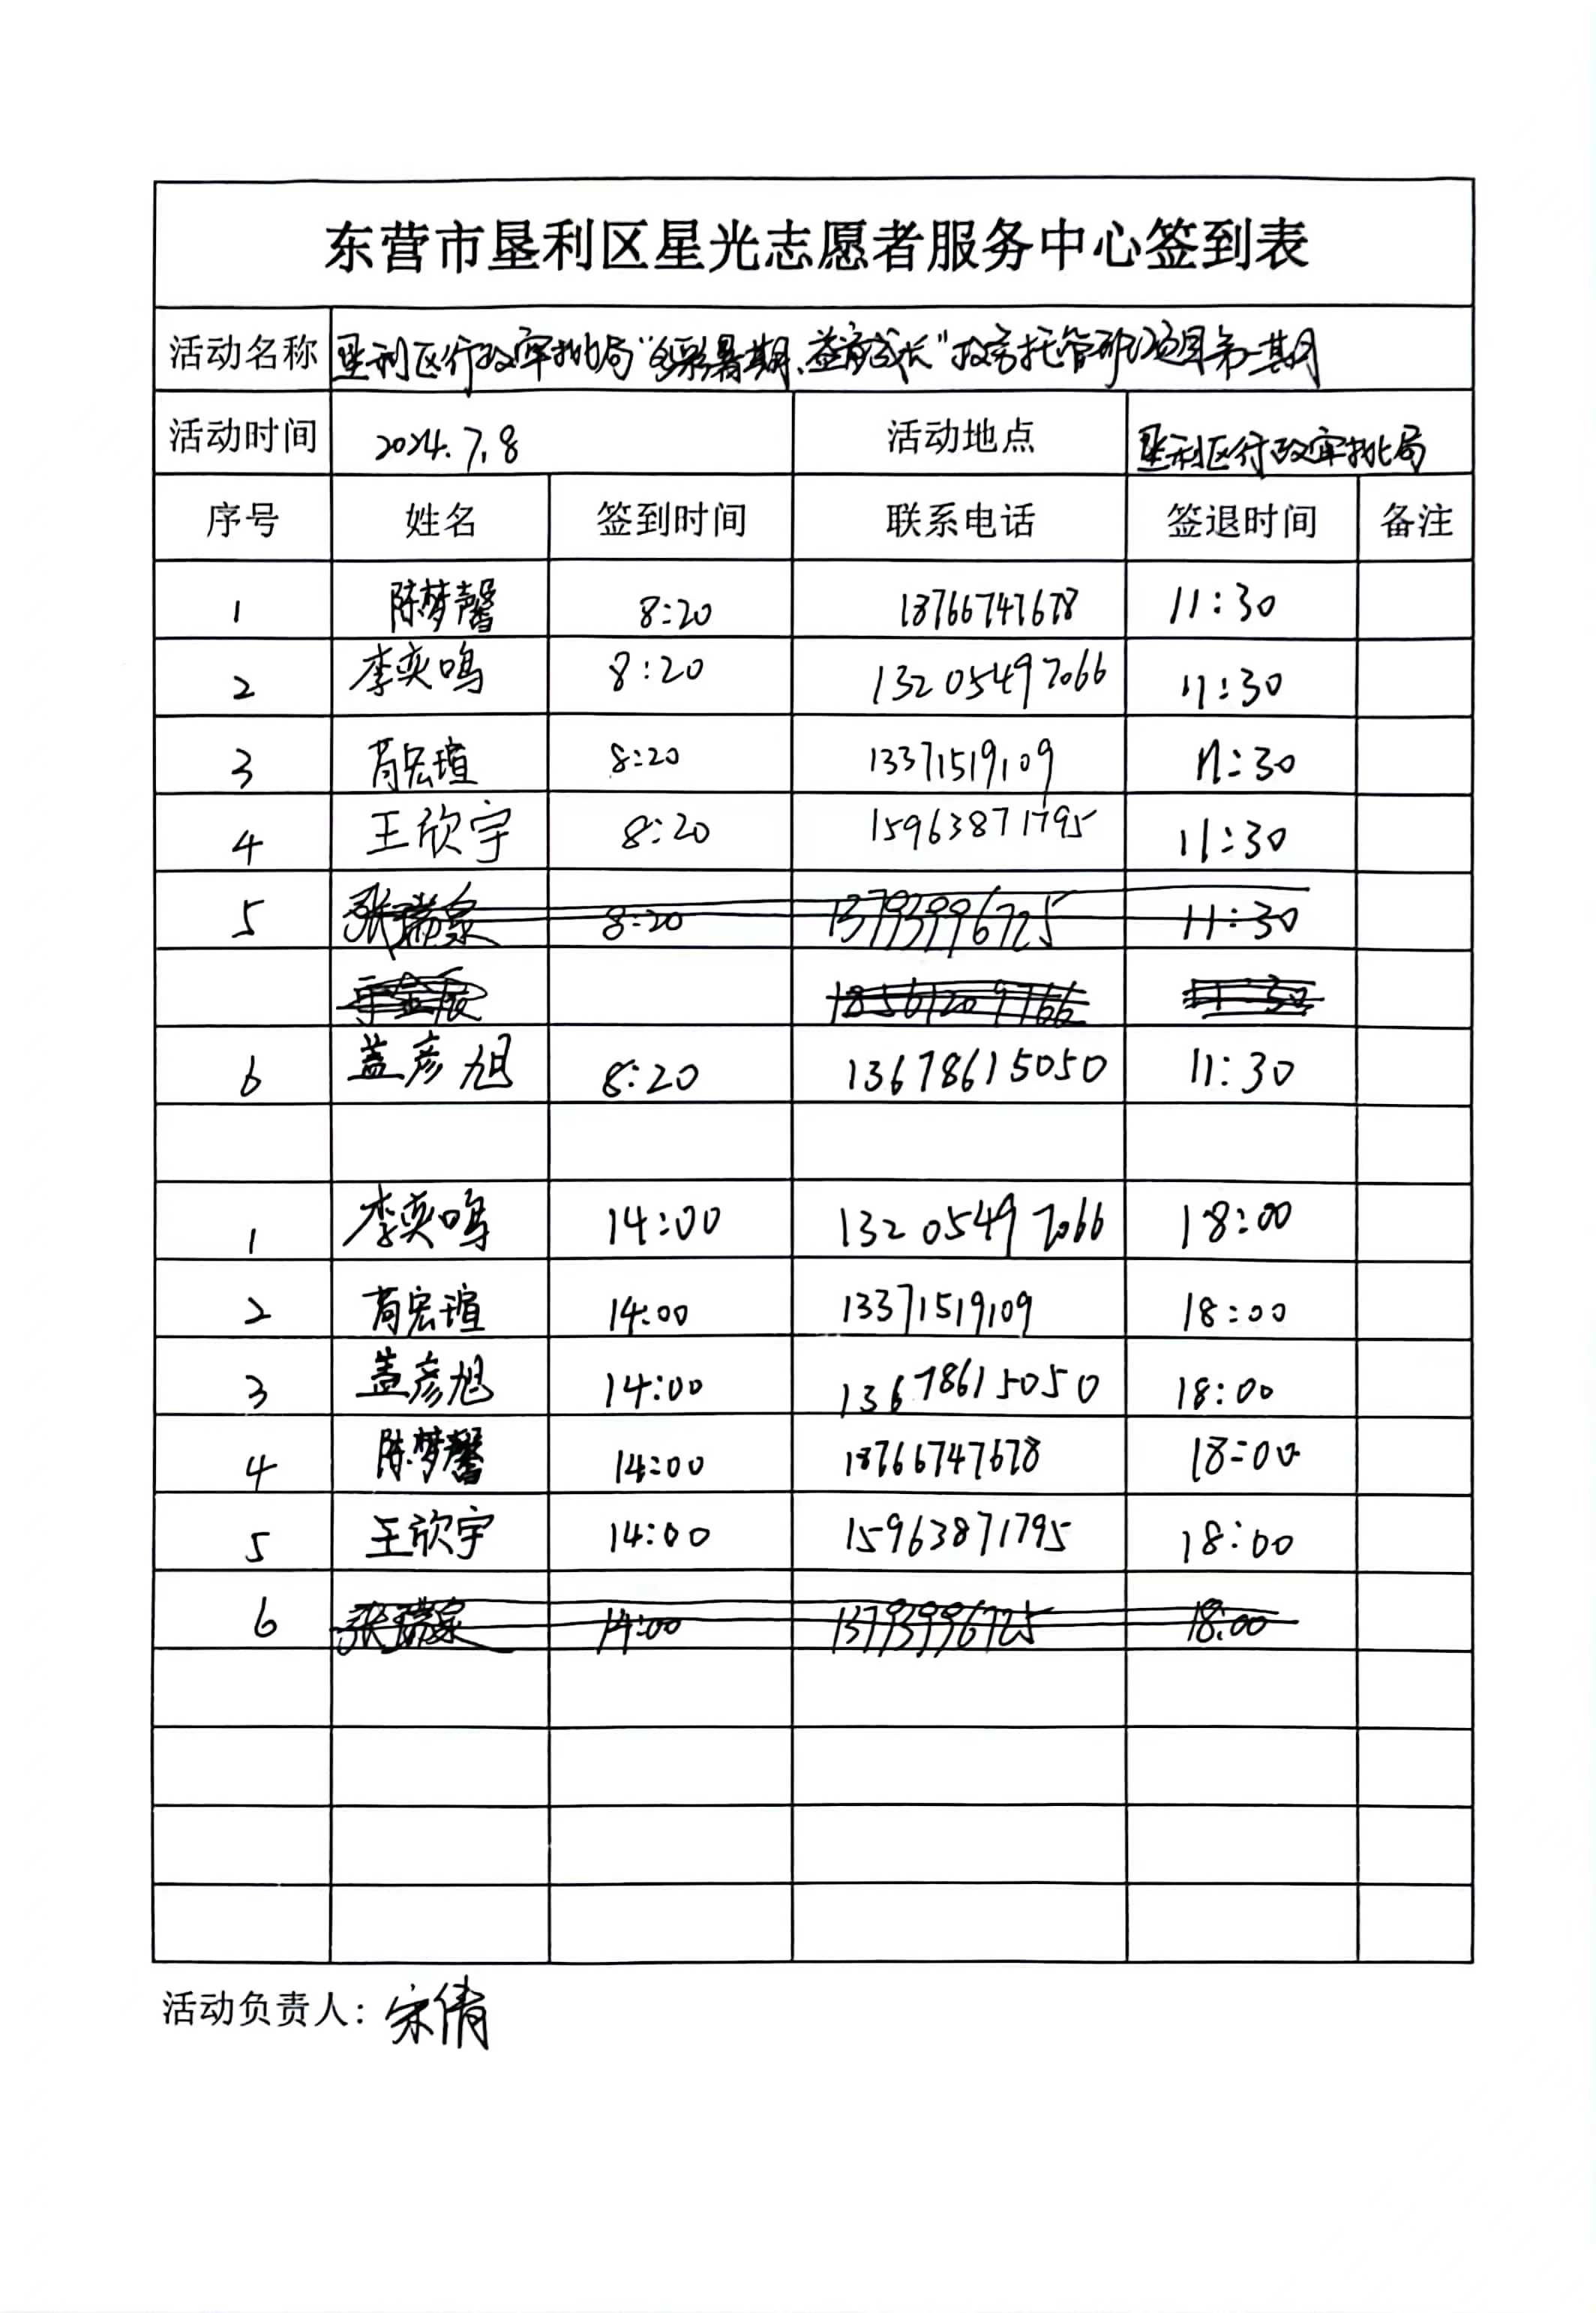 东营市垦利区星光志愿者服务中心签到表
活动名称 垦利区行政审批局“多彩暑期、益育成长”投名托管班项目第一期
活动时间 2024.7.8 活动地点 垦利区行政审批局
序号 姓名 签到时间 联系电话 签退时间 备注
1 陈梦馨 8:20 18766747678 11:30
2 李奕鸣 8:20 13205497066 11:30
3 苟宏瑄 8:20 13371519109 11:30
4 王欣宇 8:20 15963871795 11:30
5 张瑞泉 8:20 13793996725 11:30
18561209766 11:30
6 盖彦旭 8:20 13678615050 11:30
1 李奕鸣 14:00 13205497066 18:00
2 苟宏瑄 14:00 13371519109 18:00
3 盖彦旭 14:00 13678615050 18:00
4 陈梦馨 14:00 18766747678 18:00
5 王欣宇 14:00 15963871795 18:00
6 张瑞泉 14:00 13793996725 18:00
活动负责人：宋倩